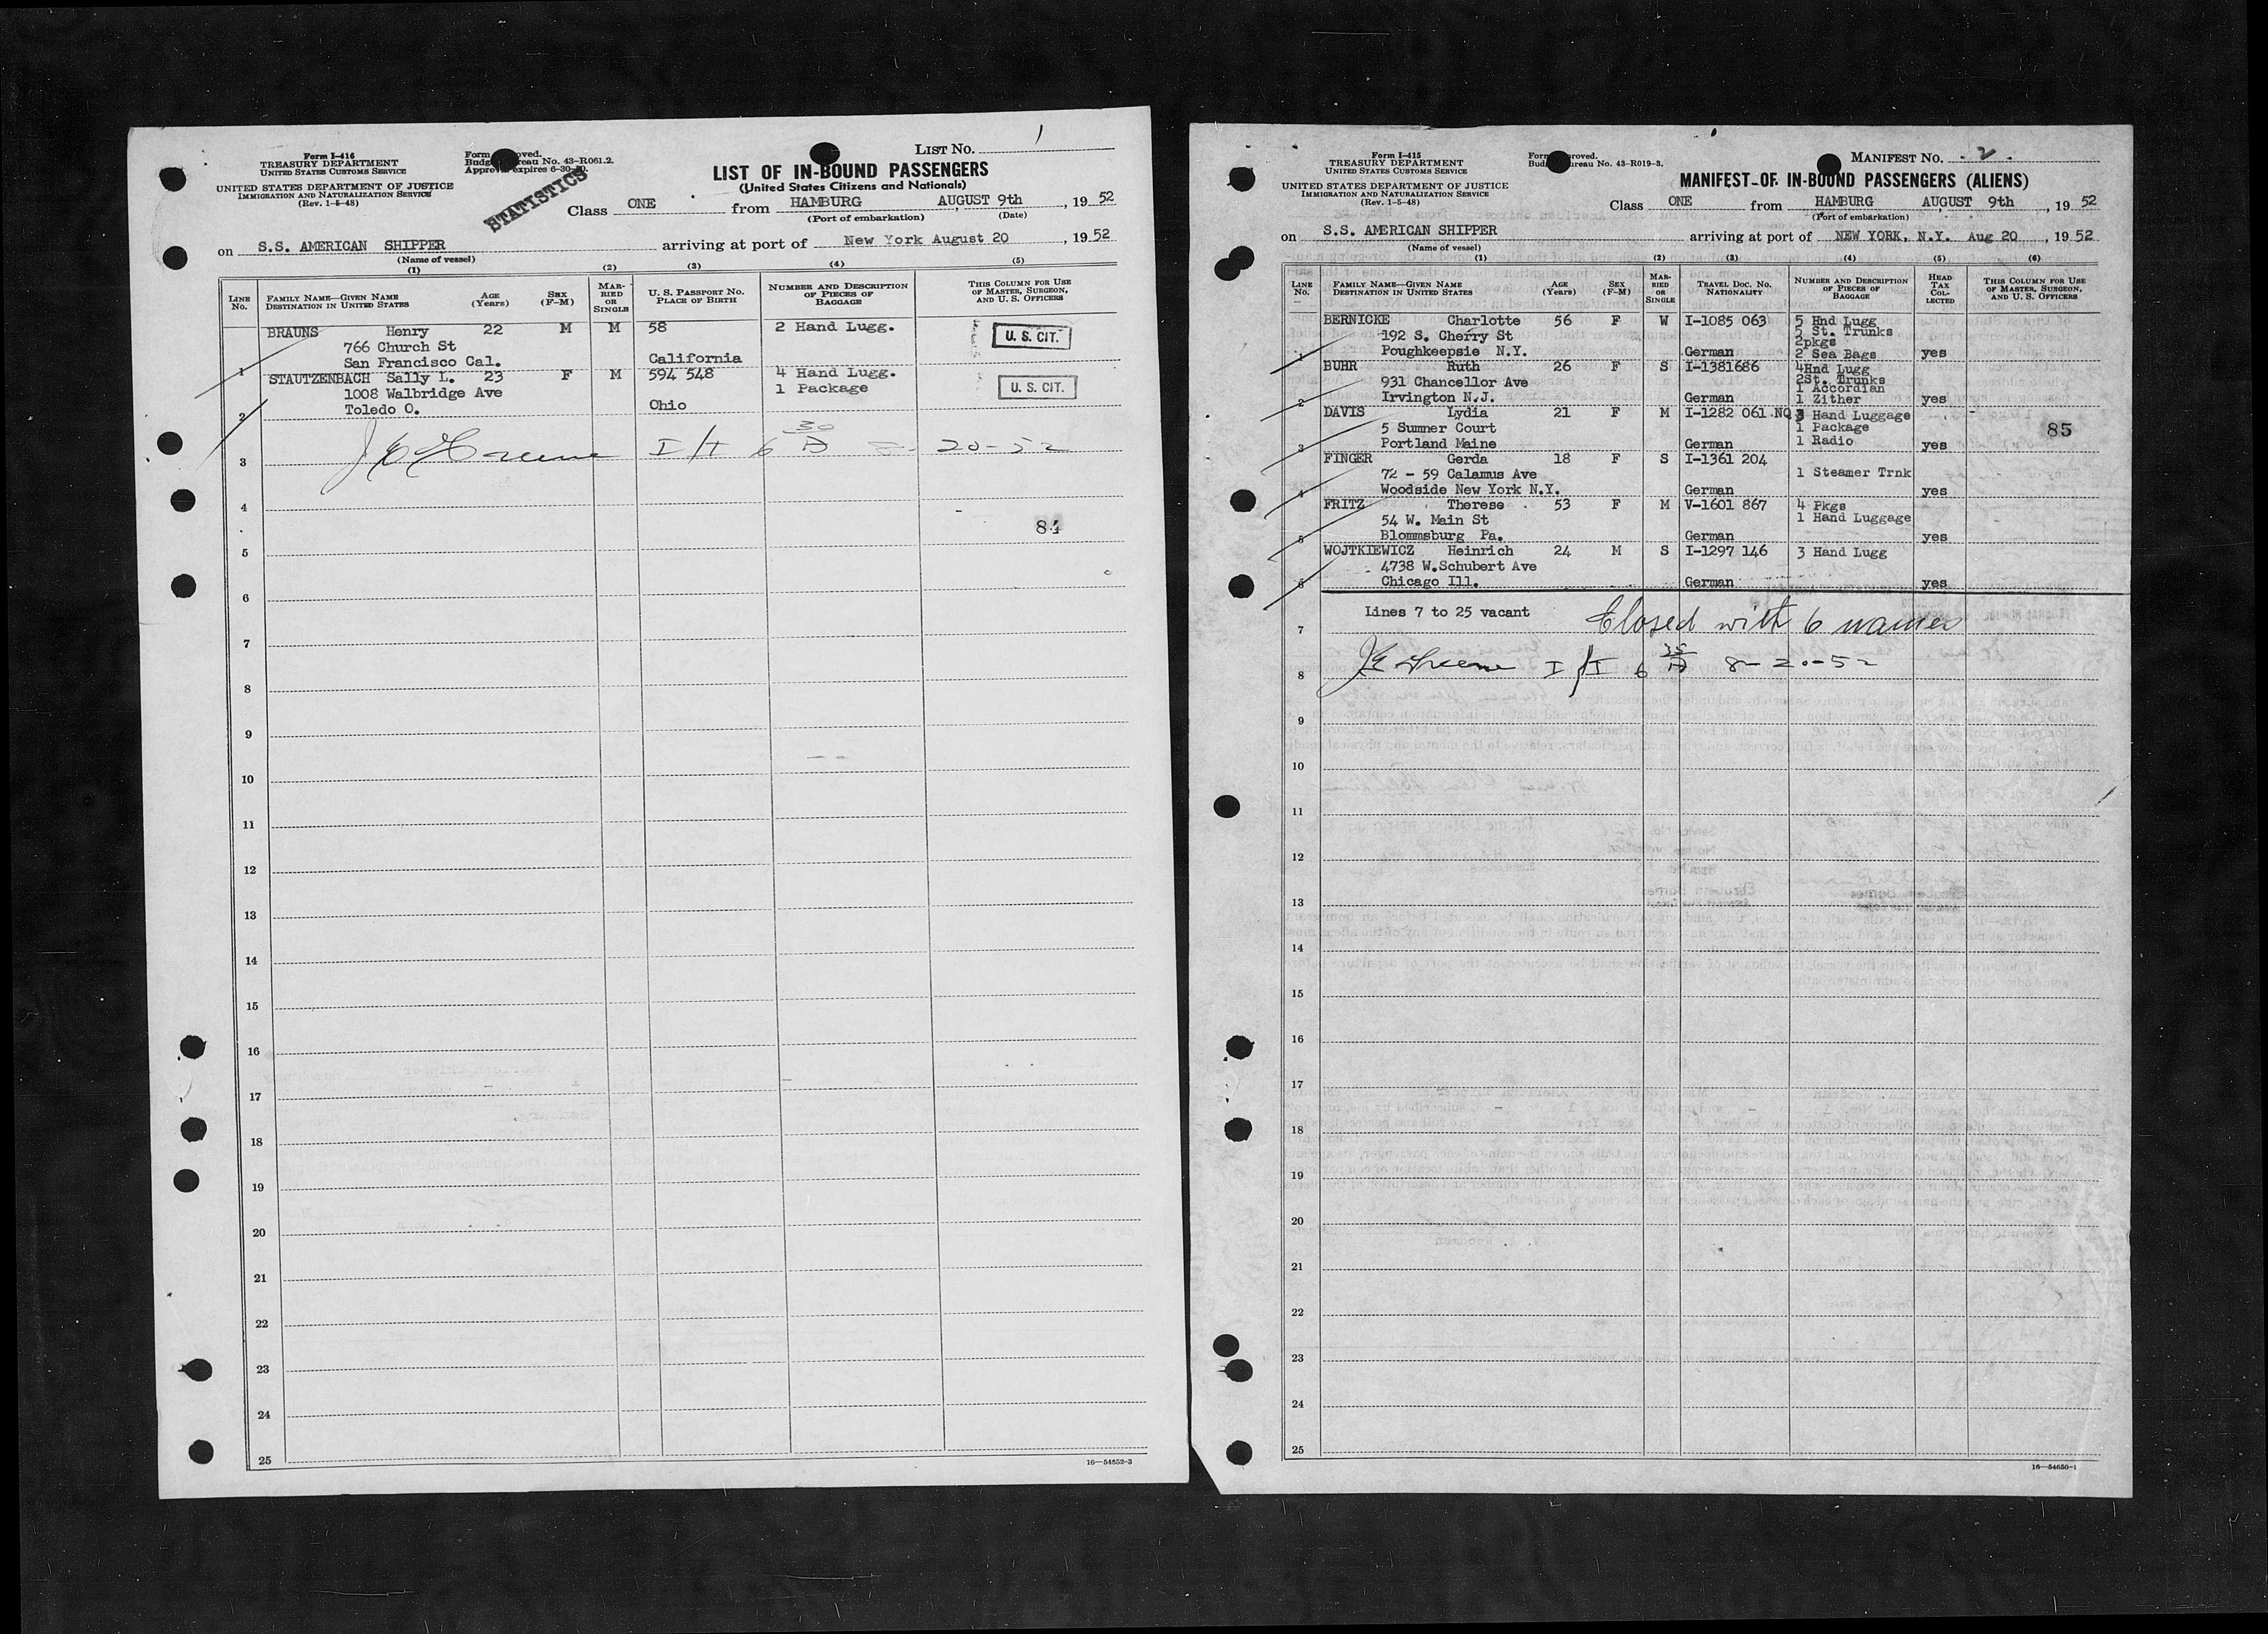 Form I-416
TREASURY DEPARTMENT
UNITED STATES CUSTOMS SERVICE
UNITED STATES DEPARTMENT OF JUSTICE
IMMIGRATION AND NATURALIZATION SERVICE
(Rev. 1-5-48)
No. 43-R061.2.
expires 6-30-
STATISTICS
LIST NO. 1
LIST OF IN-BOUND PASSENGERS
(United States Citizens and Nationals)
Class ONE from HAMBURG AUGUST 9th, 1952
(Port of embarkation) (Date)
on S.S. AMERICAN SHIPPER arriving at port of New York August 20, 1952
(Name of vessel)
(1) (2) (3) (4) (5)
LINE No. FAMILY NAME—GIVEN NAME DESTINATION IN UNITED STATES AGE (Years) SEX (F-M) MARRIED OR SINGLE U. S. PASSPORT No. PLACE OF BIRTH NUMBER AND DESCRIPTION OF PIECES OF BAGGAGE THIS COLUMN FOR USE OF MASTER, SURGEON, AND U. S. OFFICERS
BRAUNS Henry 22 M M 58 2 Hand Lugg. U. S. CIT.
766 Church St
San Francisco Cal. California
1
STAUTZENBACH Sally L. 23 F M 594 548 4 Hand Lugg. U. S. CIT.
1008 Walbridge Ave 1 Package
Toledo O. Ohio
2
3 Greene I/I 6 30 8-20-52
4
84
5
6
7
8
9
10
11
12
13
14
15
16
17
18
19
20
21
22
23
24
25
16—54552-3
Form I-415
TREASURY DEPARTMENT
UNITED STATES CUSTOMS SERVICE
UNITED STATES DEPARTMENT OF JUSTICE
IMMIGRATION AND NATURALIZATION SERVICE
(Rev. 1-5-48)
No. 43-R019-3.
MANIFEST NO. 2.
MANIFEST OF IN-BOUND PASSENGERS (ALIENS)
Class ONE from HAMBURG AUGUST 9th, 1952
(Port of embarkation)
on S.S. AMERICAN SHIPPER arriving at port of NEW YORK, N.Y. Aug 20, 1952
(Name of vessel)
(1) (2) (3) (4) (5) (6)
LINE No. FAMILY NAME—GIVEN NAME DESTINATION IN UNITED STATES AGE (Years) SEX (F-M) MARRIED OR SINGLE TRAVEL DOC. No. NATIONALITY NUMBER AND DESCRIPTION OF PIECES OF BAGGAGE HEAD TAX COLLECTED THIS COLUMN FOR USE OF MASTER, SURGEON, AND U. S. OFFICERS
BERNICKE Charlotte 56 F W I-1085 063 5 Hnd Lugg
192 S. Cherry St 5 St. Trunks
2pkgs
1 Poughkeepsie N.Y. German 2 Sea Bags yes
BUHR Ruth 26 F S I-1381686 4Hnd Lugg
931 Chancellor Ave 2St. Trunks
1 Accordian
2 Irvington N.J. German 1 Zither yes
DAVIS Lydia 21 F M I-1282 061 NQ 3 Hand Luggage
5 Sumner Court 1 Package 85
3 Portland Maine German 1 Radio yes
FINGER Gerda 18 F S I-1361 204
72 - 59 Calamus Ave 1 Steamer Trnk
4 Woodside New York N.Y. German yes
FRITZ Therese 53 F M V-1601 867 4 Pkgs
54 W. Main St 1 Hand Luggage
5 Blommsburg Pa. German yes
WOJTKIEWICZ Heinrich 24 M S I-1297 146 3 Hand Lugg
4738 W.Schubert Ave
6 Chicago Ill. German yes
Lines 7 to 25 vacant Closed with 6 names
7
8 Greene I/I 6 8-20-52
9
10
11
12
13
14
15
16
17
18
19
20
21
22
23
24
25
16—54650-1